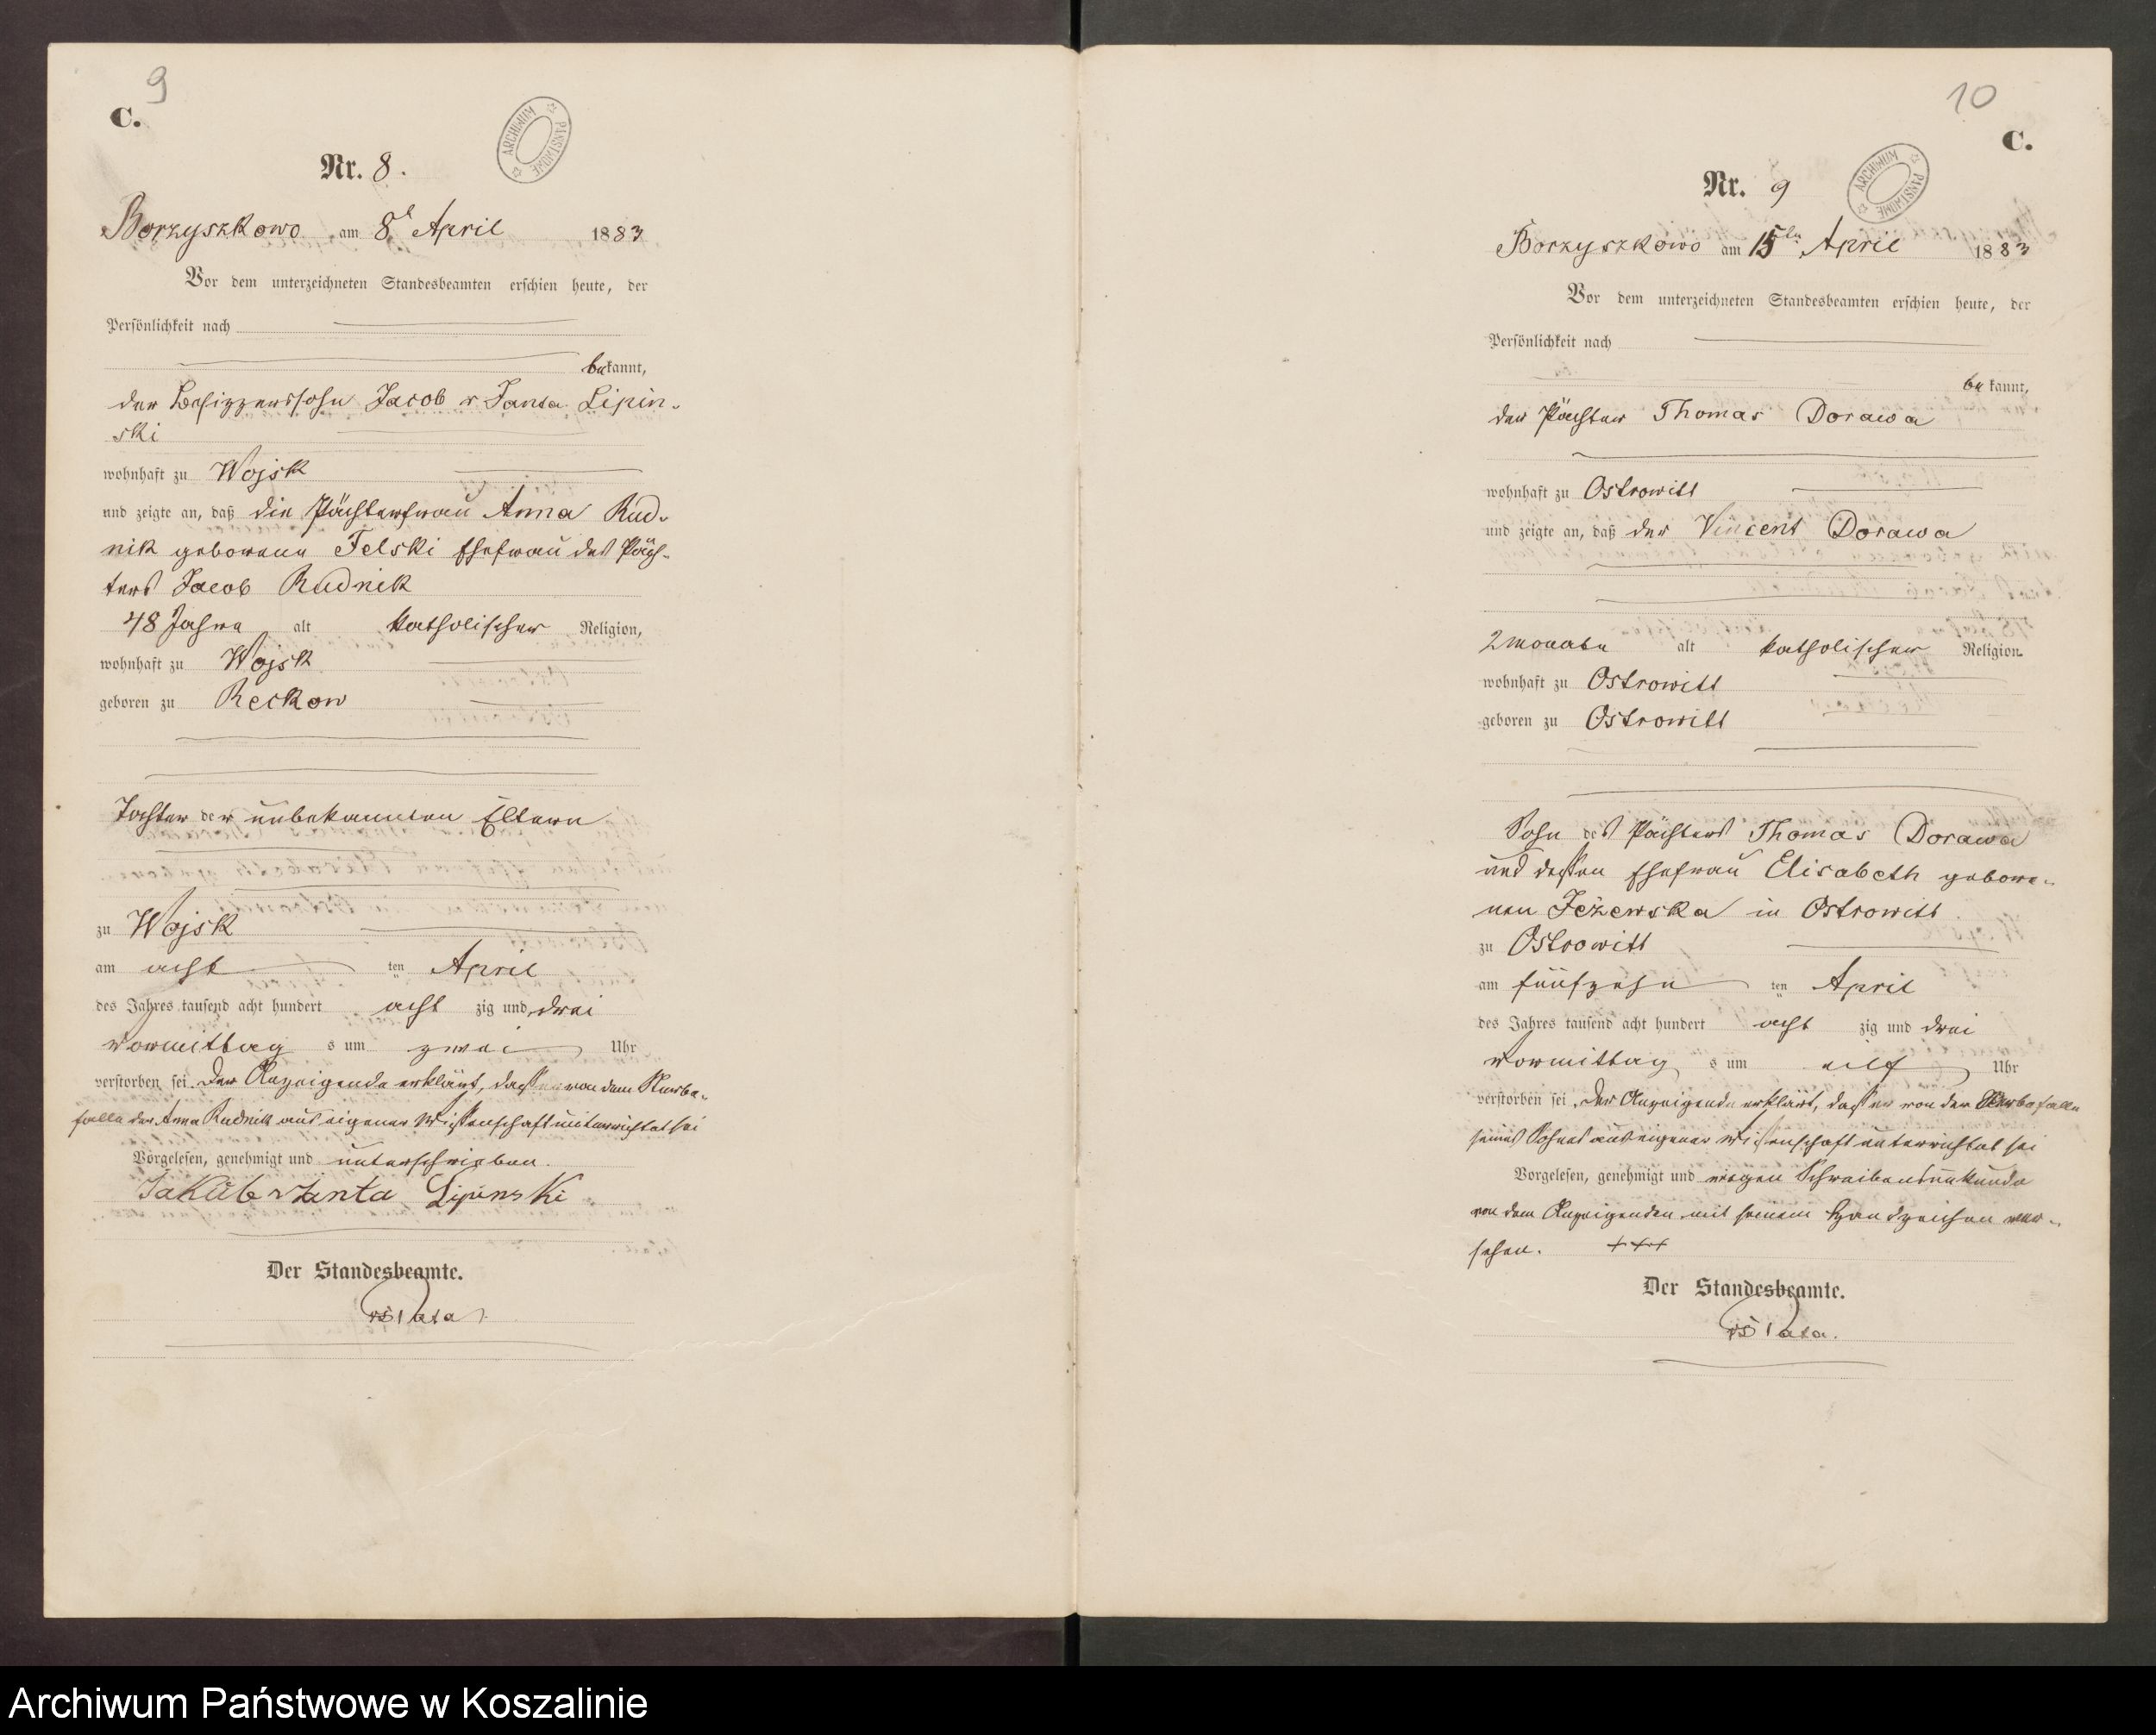 9
C.
ARCHIWUM PAŃSTWOWE
Nr. 8.
Borzyszkowo am 8t April 1883
Vor dem unterzeichneten Standesbeamten erschien heute, der
Persönlichkeit nach
bekannt,
der Besitzerssohn Jacob v Janta Lipin-
ski
wohnhaft zu Wojsk
und zeigte an, daß die Pächterfrau Anna Rud-
nik geborene Felski Ehefrau des Päch-
ters Jacob Rudnik
48 Jahre alt katholischer Religion,
wohnhaft zu Wojsk
geboren zu Reckow
Tochter der unbekannten Eltern
zu Wojsk
am acht ten April
des Jahres tausend acht hundert acht zig und drei
Vormittag s um zwei Uhr
verstorben sei. Der Anzeigende erklärt, daß er von dem Sterbe-
falle der Anna Rudnik aus eigener Wissenschaft unterrichtet sei
Vorgelesen, genehmigt und unterschrieben.
Jakub v Janta Lipinski
Der Standesbeamte.
10
C.
ARCHIWUM PAŃSTWOWE
Nr. 9
Borzyszkowo am 15ten April 1883
Vor dem unterzeichneten Standesbeamten erschien heute, der
Persönlichkeit nach
bekannt,
der Pächter Thomas Dorawa
wohnhaft zu Ostrowitt
und zeigte an, daß der Vincent Dorawa
2 Monate alt katholischer Religion
wohnhaft zu Ostrowitt
geboren zu Ostrowitt
Sohn des Pächters Thomas Dorawa
und dessen Ehefrau Elisabeth gebore-
nen Jeżewska in Ostrowitt
zu Ostrowitt
am fünfzehn ten April
des Jahres tausend acht hundert acht zig und drei
Vormittag s um eilf Uhr
verstorben sei. Der Anzeigende erklärt, daß er von dem Sterbefalle
seines Sohnes aus eigener Wissenschaft unterrichtet sei
Vorgelesen, genehmigt und wegen Schreibensunkunde
von dem Anzeigenden mit seinem Handzeichen ver-
sehen. +++
Der Standesbeamte.
Archiwum Państwowe w Koszalinie